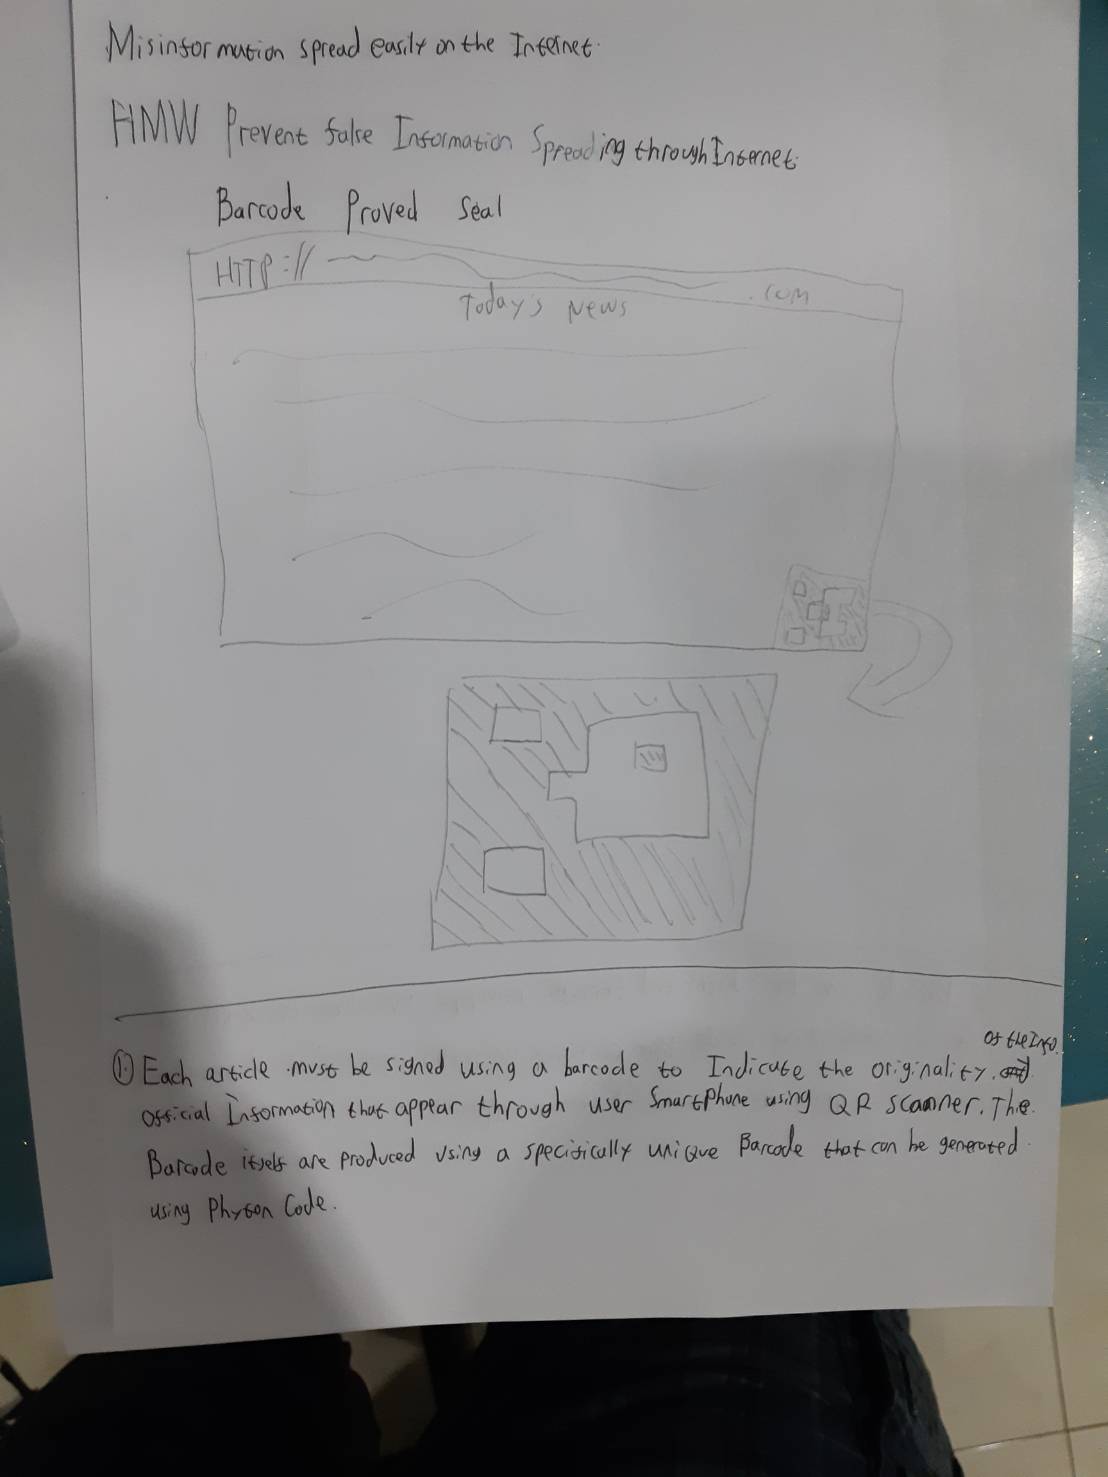 Misinformation spread easily on the Internet.
HMW Prevent false Information Spreading through Internet.
Barcode Proved Seal
HTTP://
.com
Today's News
of the Info.
① Each article must be signed using a barcode to Indicate the originality.
official Information that appear through user Smartphone using QR scanner. The
Barcode itself are produced using a specifically unique Barcode that can be generated
using Phyton Code.